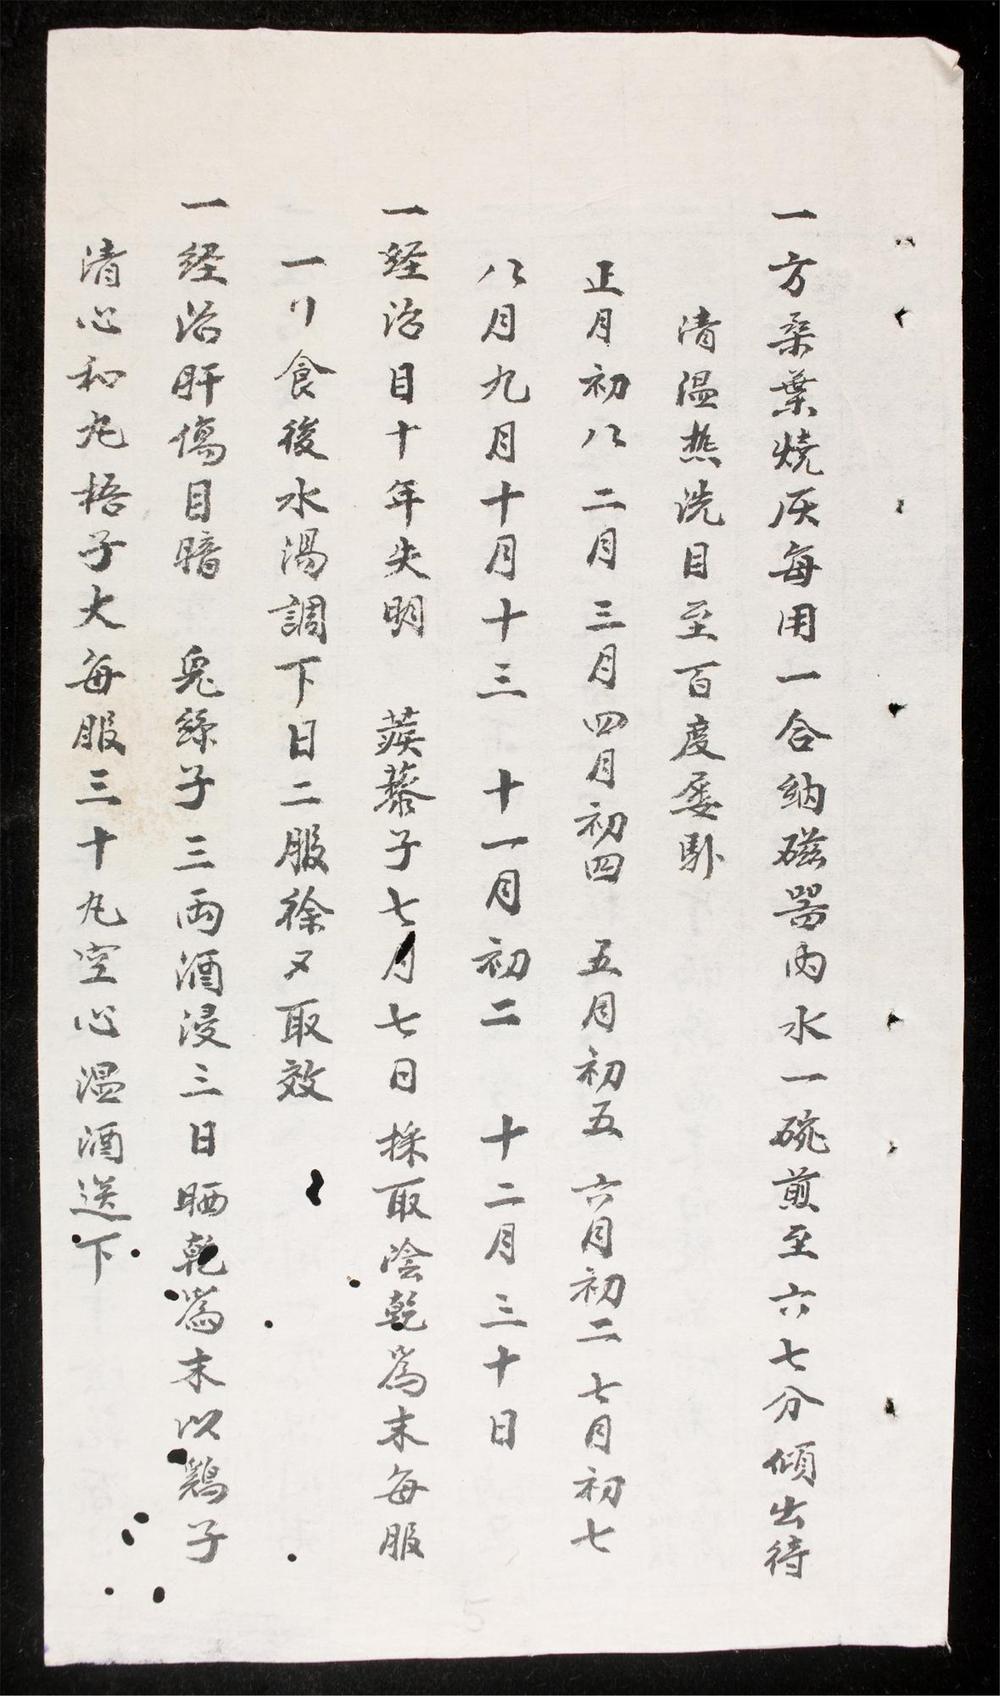 一方桑葉燒灰每用一合納磁器內水一碗煎至六七分傾出待
清温热洗目至百度屡卧
正月初八 二月三月四月初四 五月初五 六月初二七月初七
八月九月十月十三 十一月初二 十二月三十日
一経治目十年失明 蒺藜子七月七日採取陰乾為末每服
一刀食後水湯調下日二服徐又取效
一経治肝傷目暗 兎絲子三兩酒浸三日晒乾為末以鷄子
清心和丸梧子大每服三十丸空心温酒送下
5